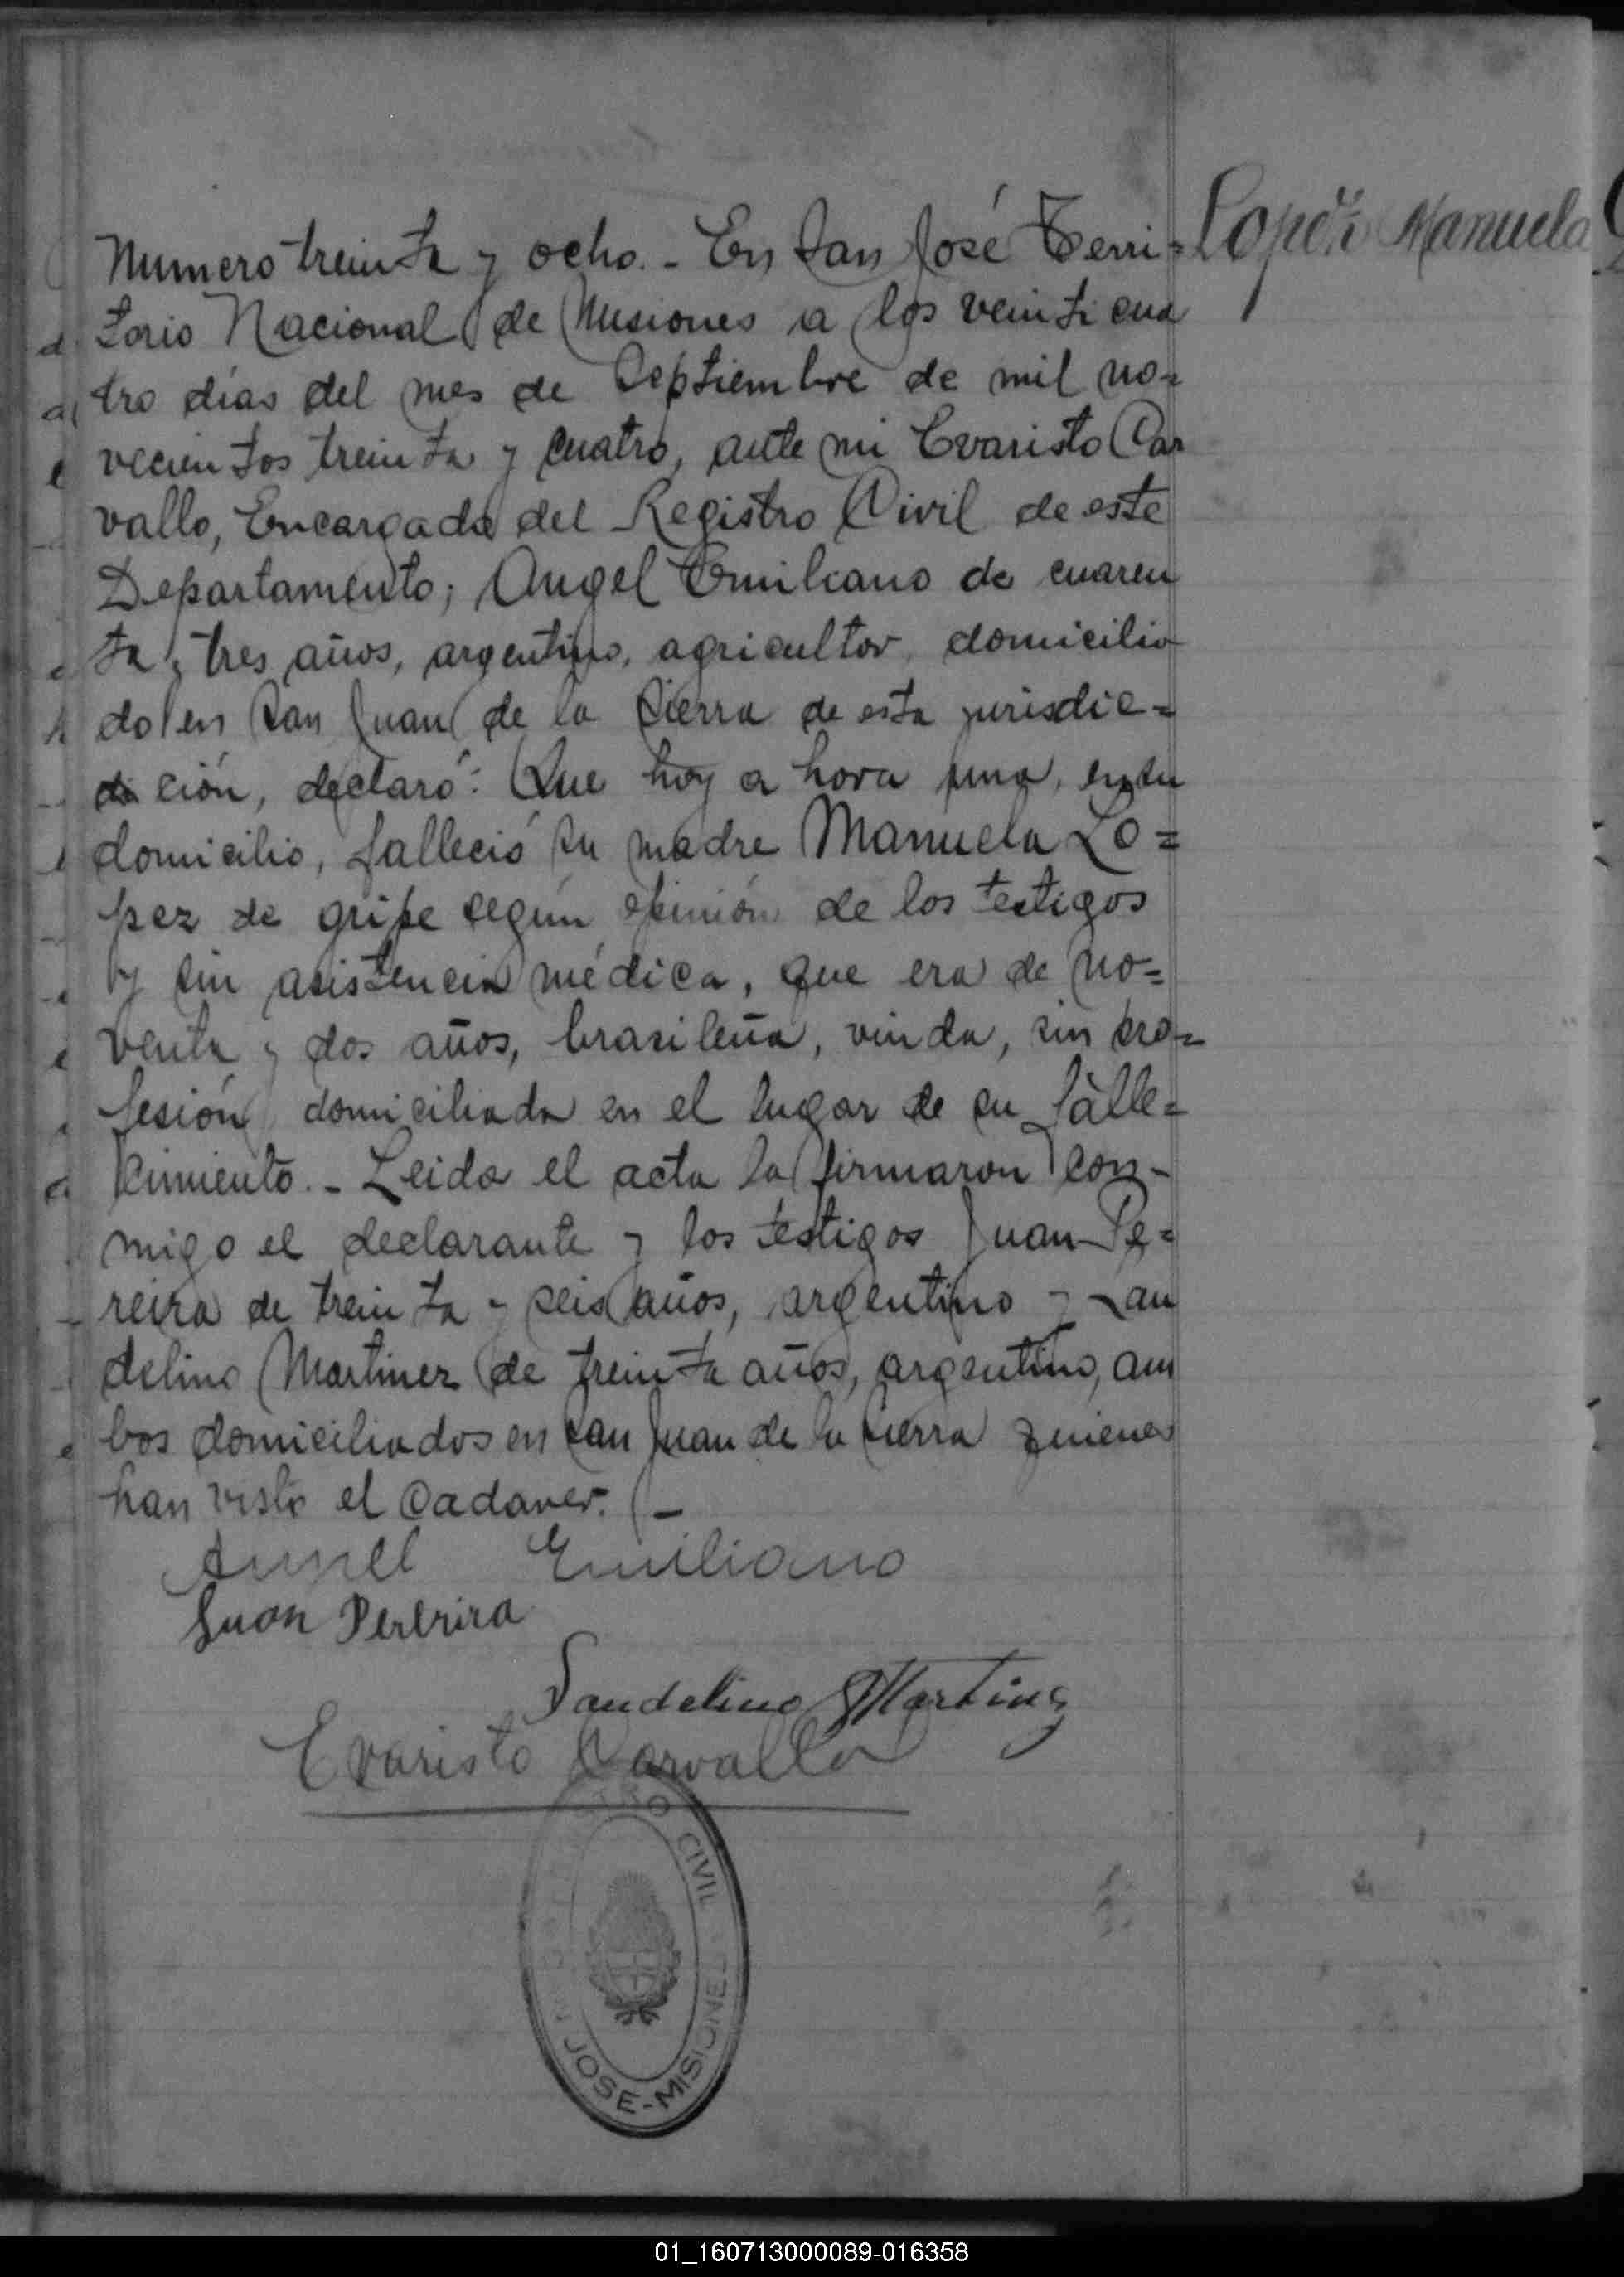 Numero treinta y ocho. - En San José Terri=
Lopez Manuela
torio Nacional de Misiones a los veinticua
tro días del mes de Septiembre de mil no=
vecientos treinta y cuatro, ante mi Evaristo Car
vallo, Encargado del Registro Civil de este
Departamento; Angel Emiliano de cuaren
ta y tres años, argentino, agricultor, domicilia
do en San Juan de la Sierra de esta jurisdic=
ción, declaró: Que hoy a hora una, en su
domicilio, falleció su madre Manuela Lo=
pez de gripe según opinión de los testigos
y sin asistencia médica, que era de no=
venta y dos años, brasileña, viuda, sin pro=
fesión, domiciliada en el lugar de su falle=
cimiento. - Leida el acta la firmaron con-
migo el declarante y los testigos Juan Pe=
reira de treinta y seis años, argentino y Lan
delino Martinez de treinta años, argentino, am
bos domiciliados en San Juan de la Sierra quienes
han visto el cadaver. -
Angel Emiliano
Juan Pereira
Landelino Martinez
Evaristo Carvallo
CIVIL
JOSE-MISIONES
01_160713000089-016358